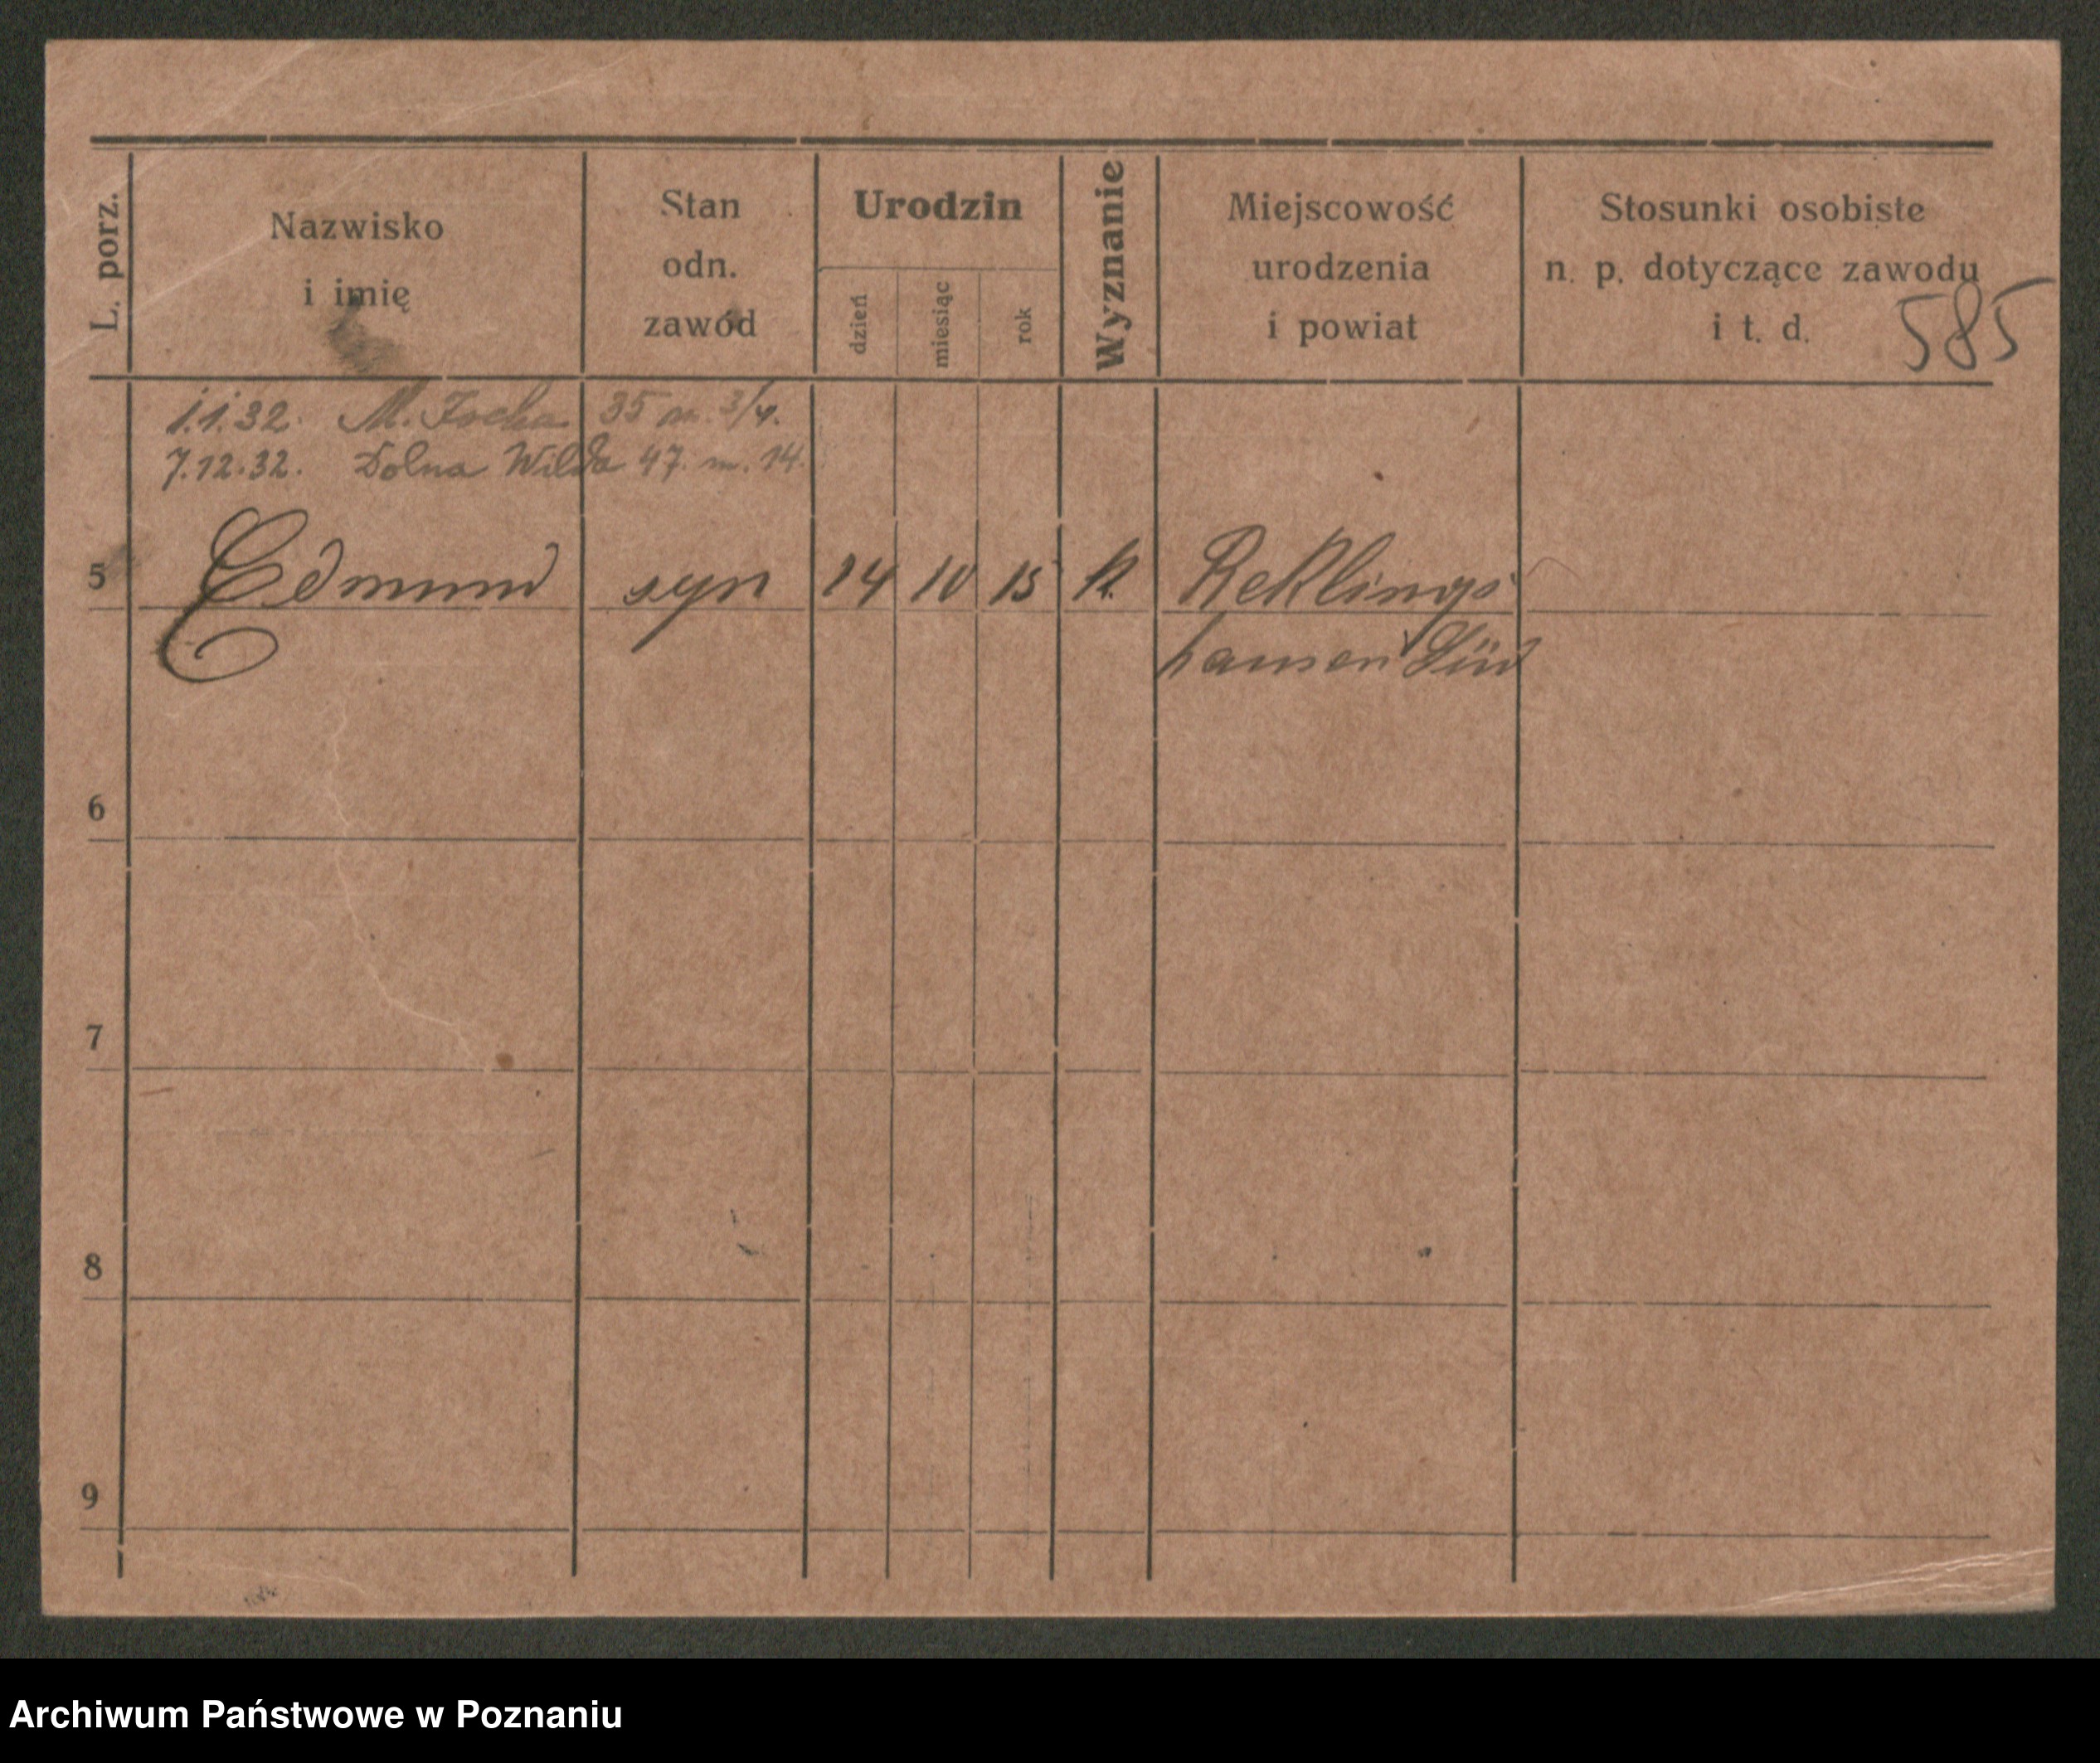 L. porz.
Nazwisko
i imię
Stan
odn.
zawód
Urodzin
dzień
miesiąc
rok
Wyznanie
Miejscowość
urodzenia
i powiat
Stosunki osobiste
n. p. dotyczące zawodu
i t. d.
585
1.1.32. M. Focha 35 m. 3/4.
7.12.32. Dolna Wilda 47. m. 14.
5 Edmund syn 14 10 15 k. Reklings
hausen Süd
6
7
8
9
Archiwum Państwowe w Poznaniu